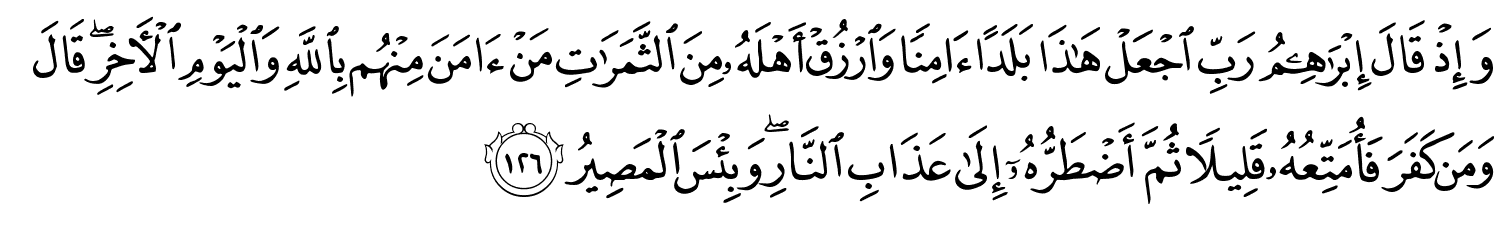 وَإِذۡ قَالَ إِبۡرَٰهِـۧمُ رَبِّ ٱجۡعَلۡ هَٰذَا بَلَدًا ءَامِنٗا وَٱرۡزُقۡ أَهۡلَهُۥ مِنَ ٱلثَّمَرَٰتِ مَنۡ ءَامَنَ مِنۡهُم بِٱللَّهِ وَٱلۡيَوۡمِ ٱلۡأٓخِرِۖ قَالَ
وَمَن كَفَرَ فَأُمَتِّعُهُۥ قَلِيلٗا ثُمَّ أَضۡطَرُّهُۥٓ إِلَىٰ عَذَابِ ٱلنَّارِۖ وَبِئۡسَ ٱلۡمَصِيرُ ١٢٦